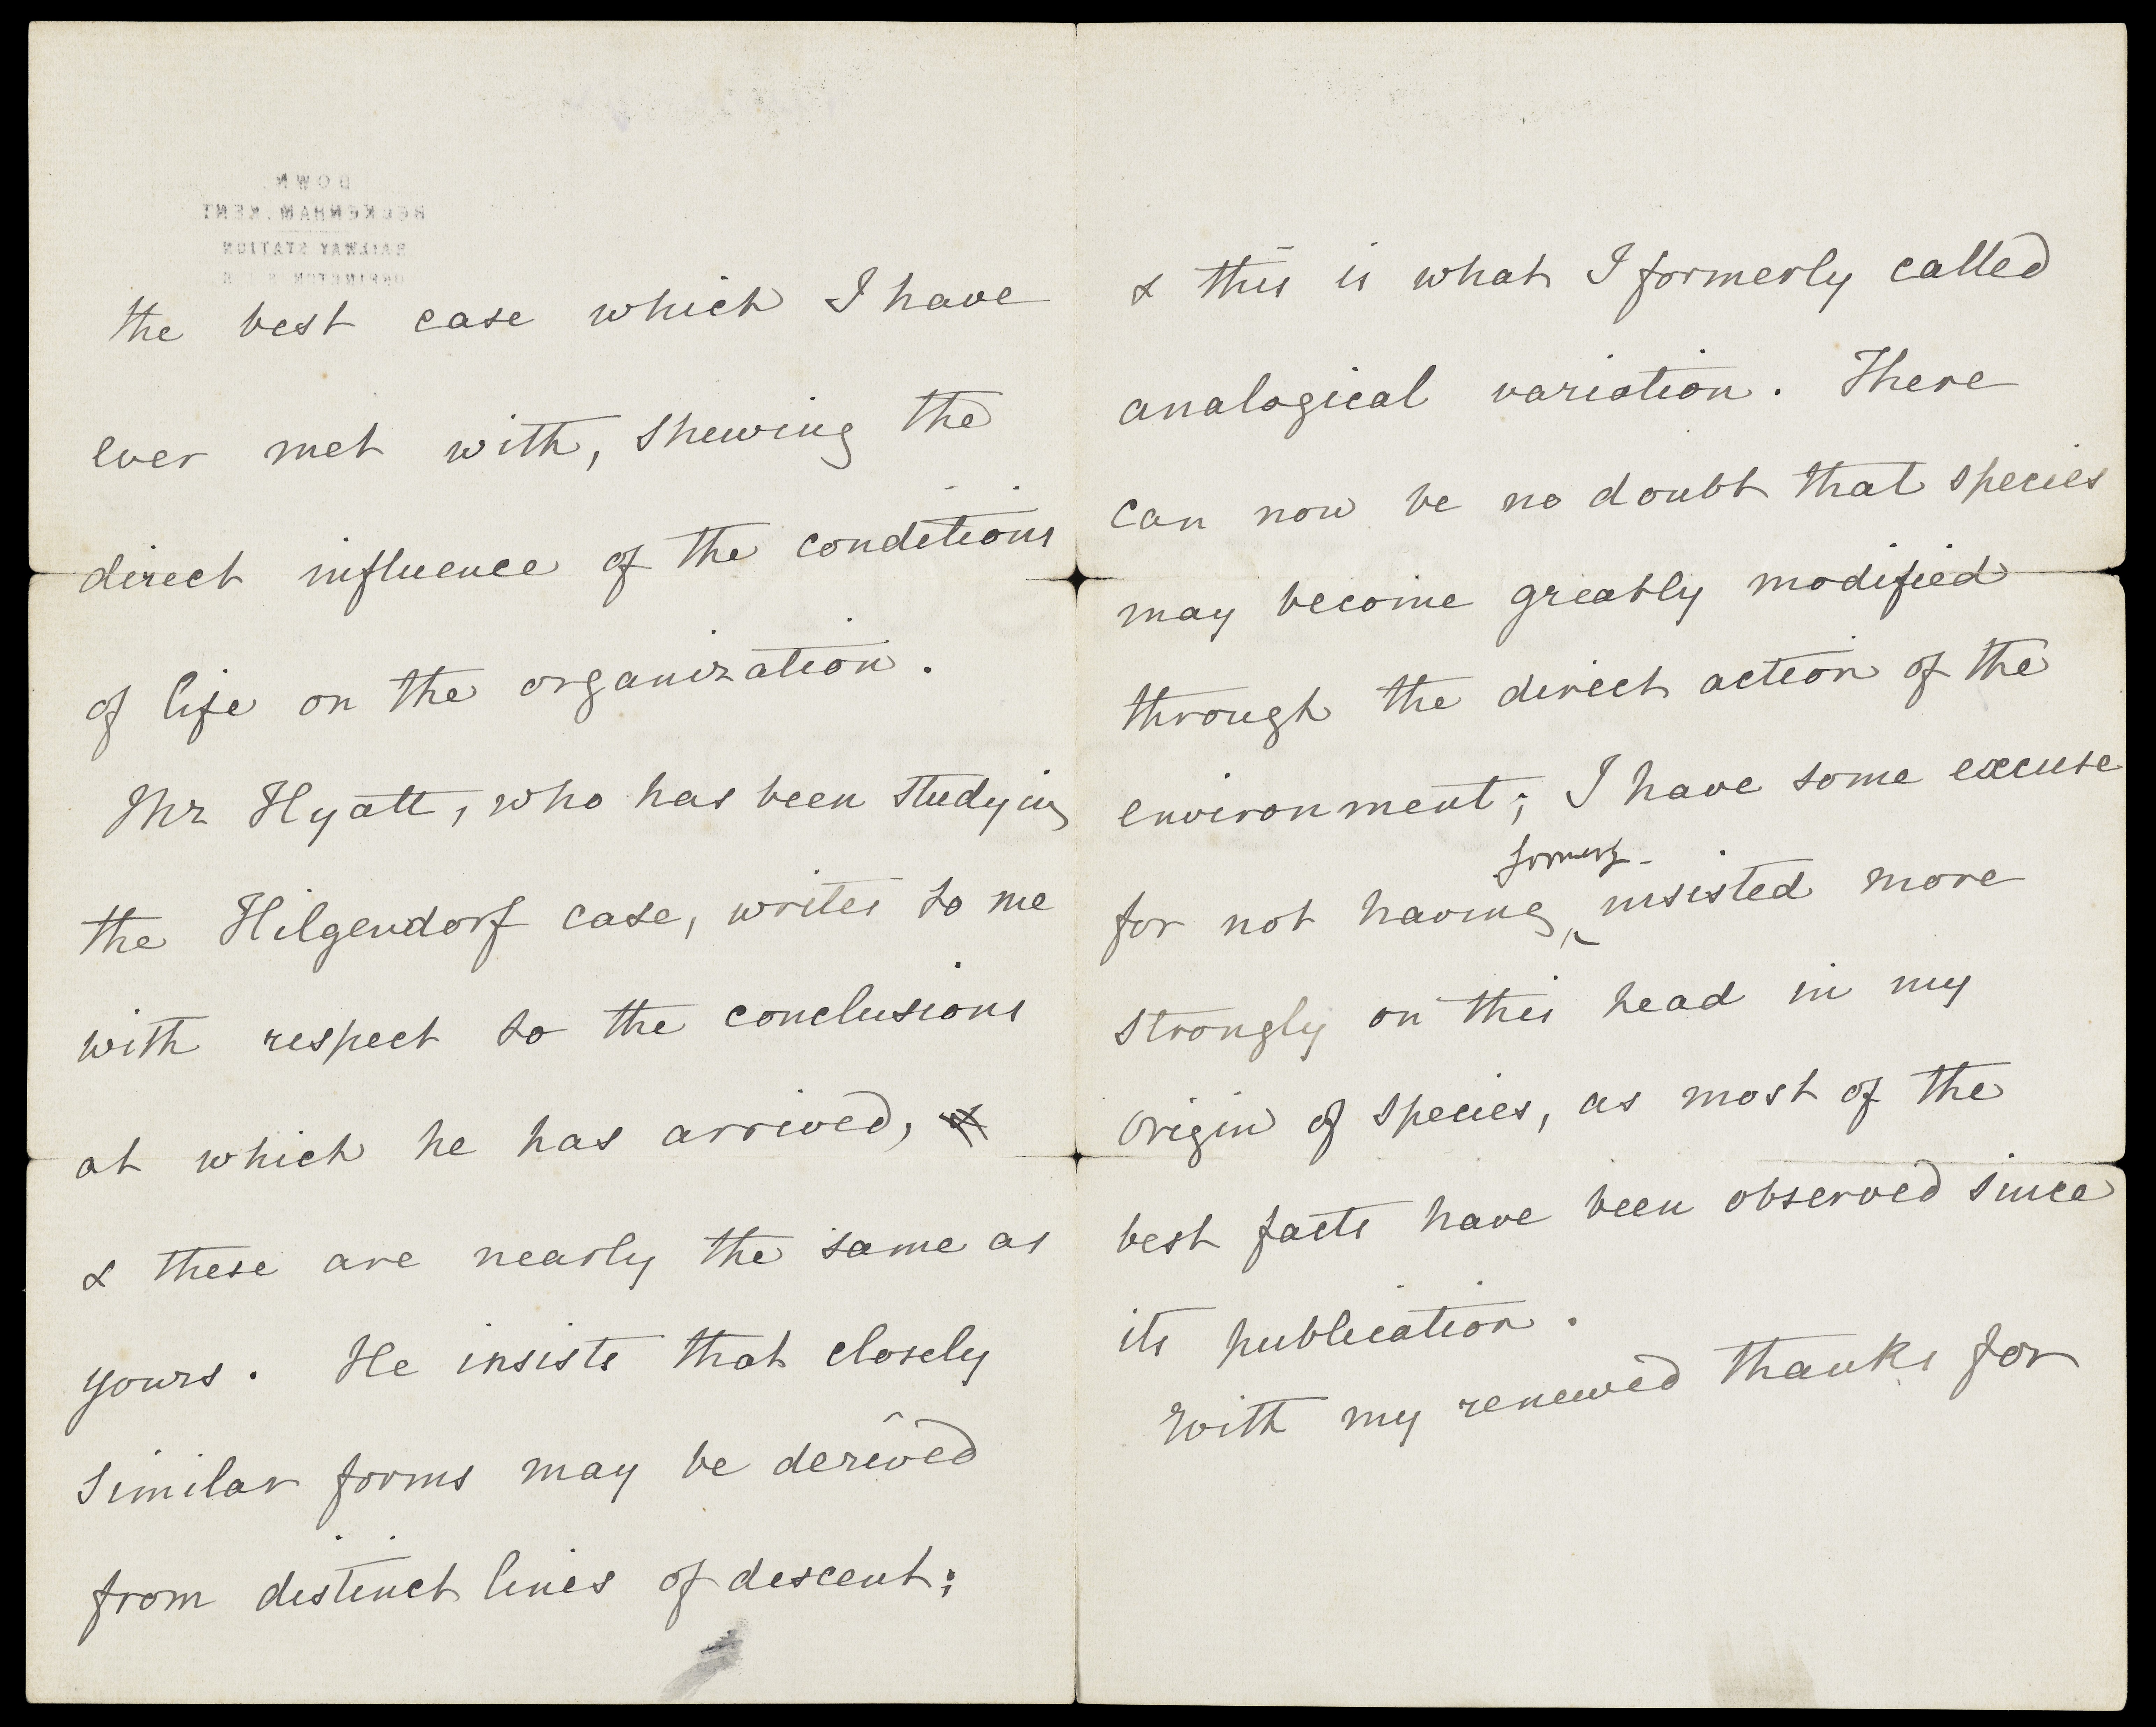 DOWN.
BECKENHAM. KENT
RAILWAY STATION
ORPINGTON S.E.R.
the best case which I have
ever met with, shewing the
direct influence of the conditions
of life on the organization.
Mr Hyatt, who has been studying
the Hilgendorf case, writes to me
with respect to the conclusions
at which he has arrived,
& these are nearly the same as
yours. He insists that closely
similar forms may be derived
from distinct lines of descent;
& this is what I formerly called
analogical variation. There
can now be no doubt that species
may become greatly modified
through the direct action of the
environment; I have some excuse
formerly
for not having insisted more
strongly on this head in my
Origin of Species, as most of the
best facts have been observed since
its publication.
With my renewed thanks for